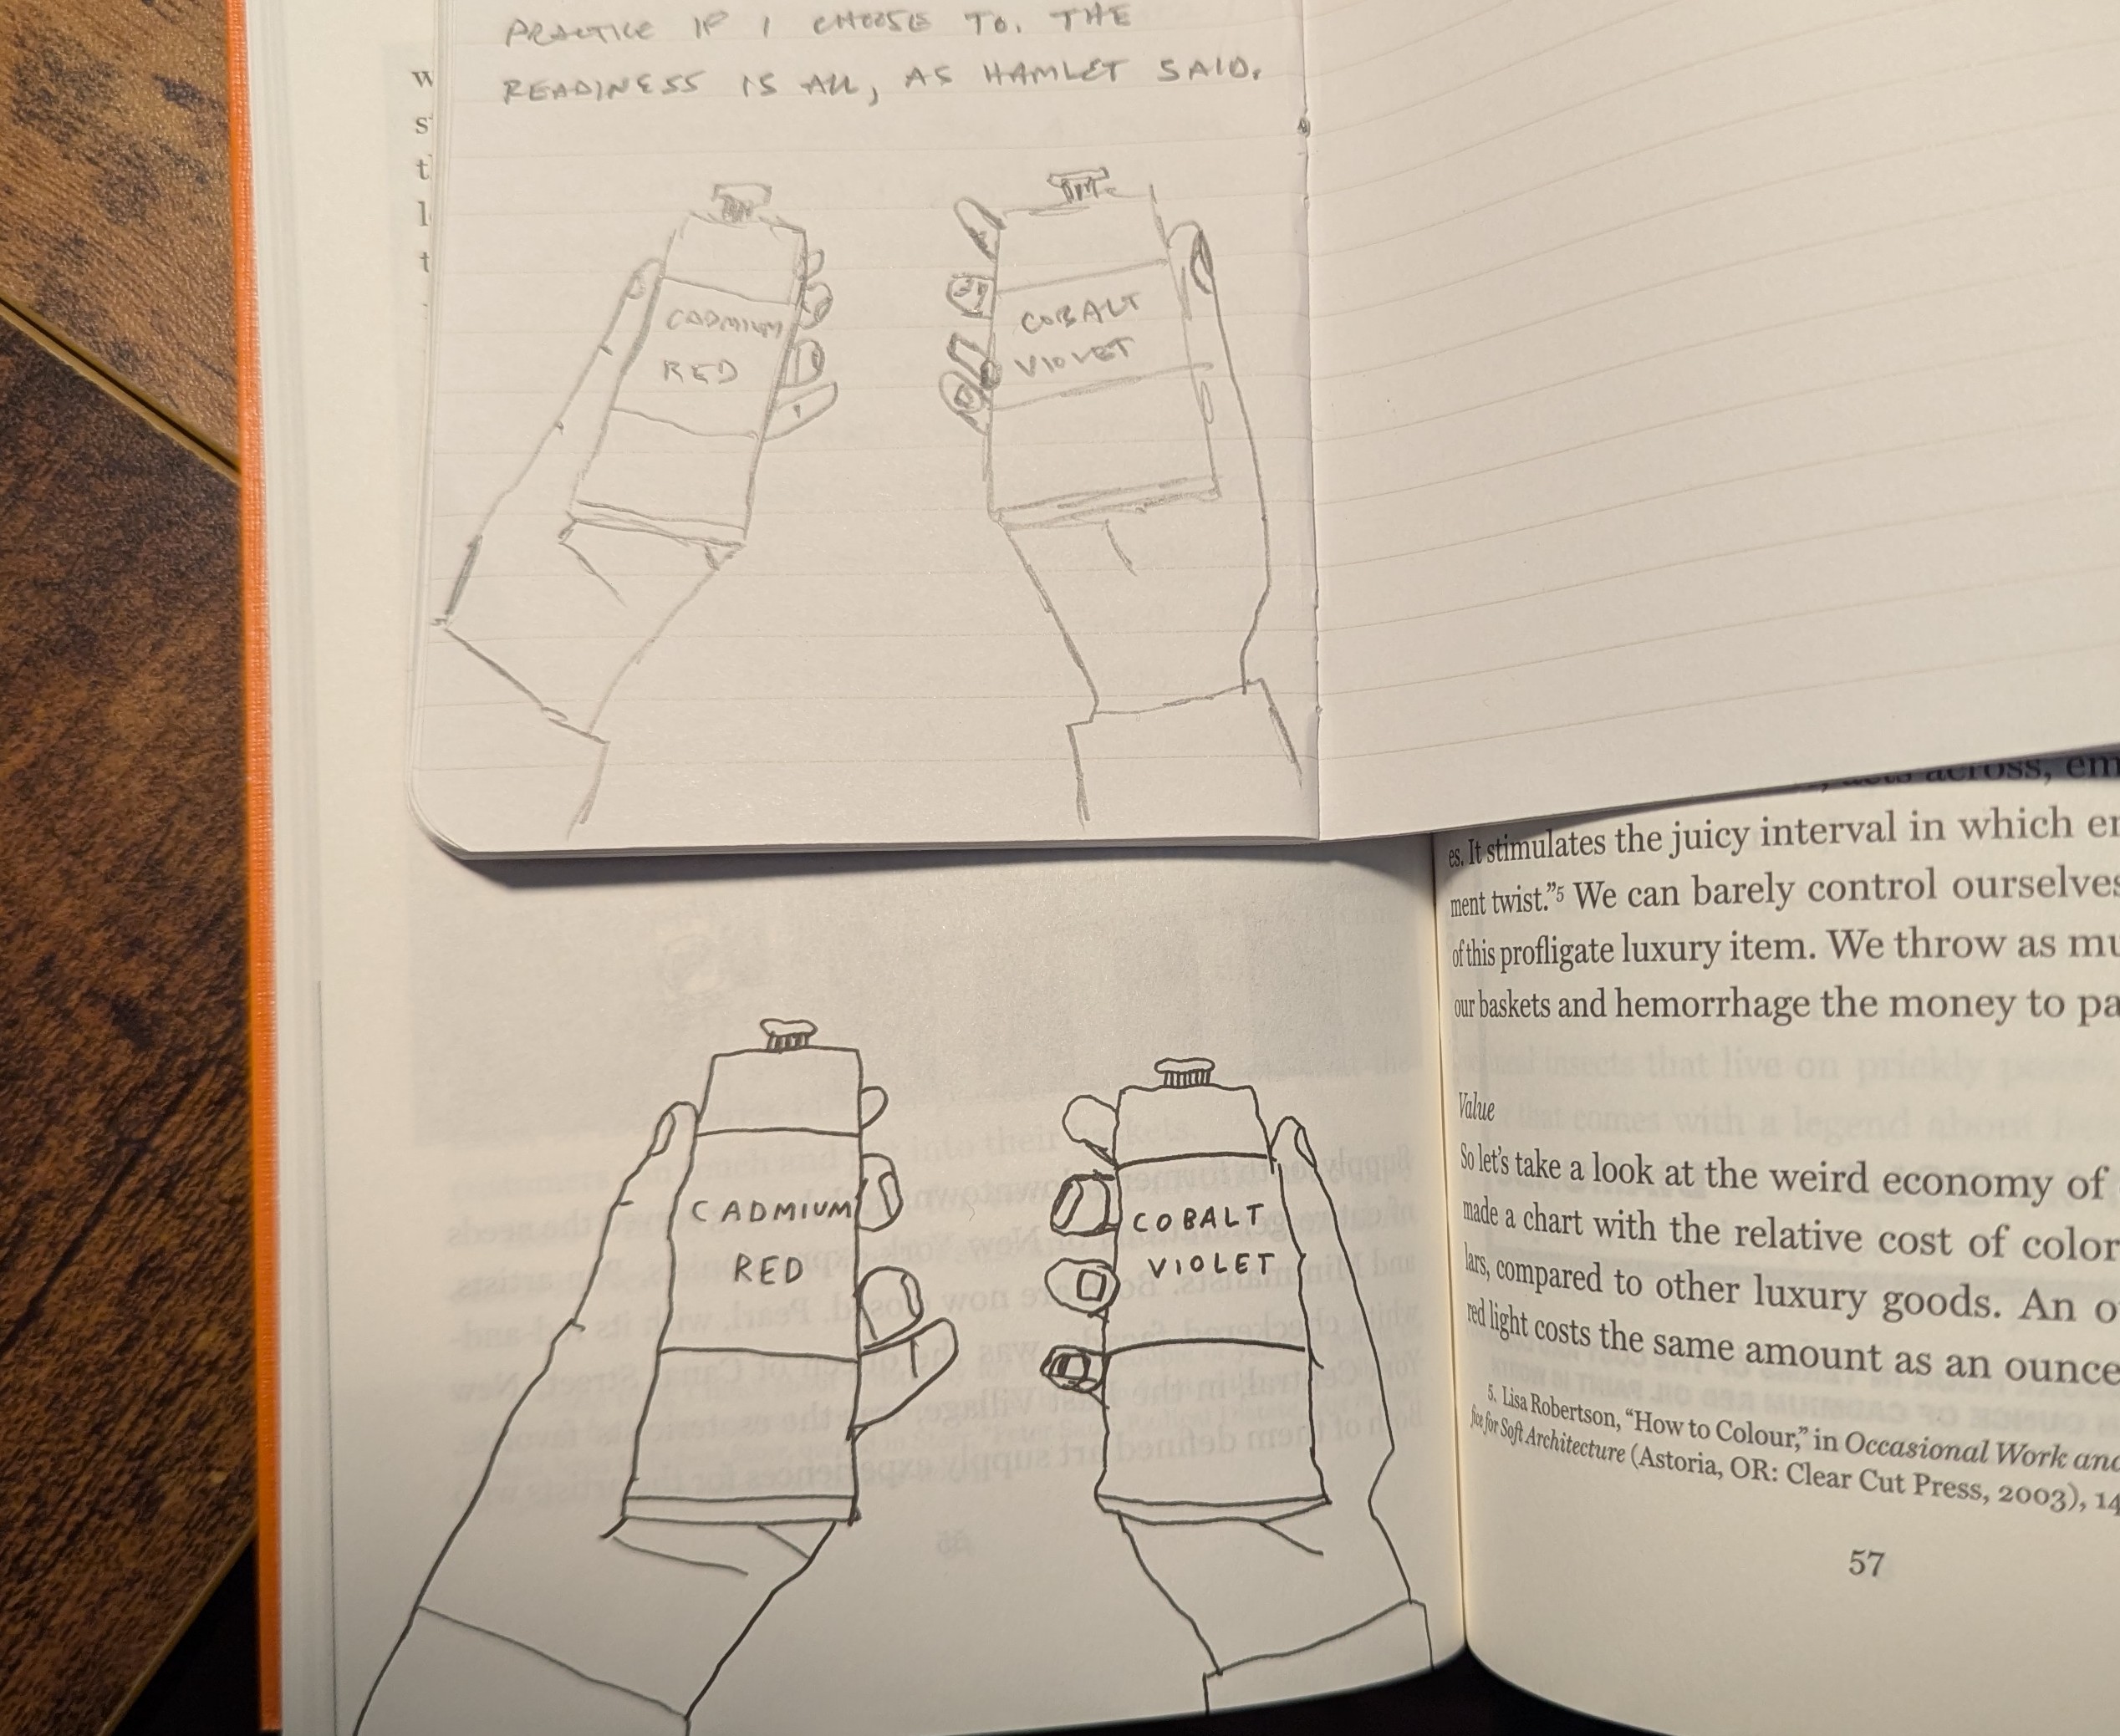 PRACTICE IF I CHOOSE TO. THE
READINESS IS ALL, AS HAMLET SAID.
CADMIUM
RED
COBALT
VIOLET
w
s
t
l
t
CADMIUM
RED
COBALT
VIOLET
across, em
es. It stimulates the juicy interval in which er
ment twist.”5 We can barely control ourselves
of this profligate luxury item. We throw as mu
our baskets and hemorrhage the money to pa
Value
So let’s take a look at the weird economy of
made a chart with the relative cost of color
lars, compared to other luxury goods. An o
red light costs the same amount as an ounce
5. Lisa Robertson, “How to Colour,” in Occasional Work and
fice for Soft Architecture (Astoria, OR: Clear Cut Press, 2003), 14
57